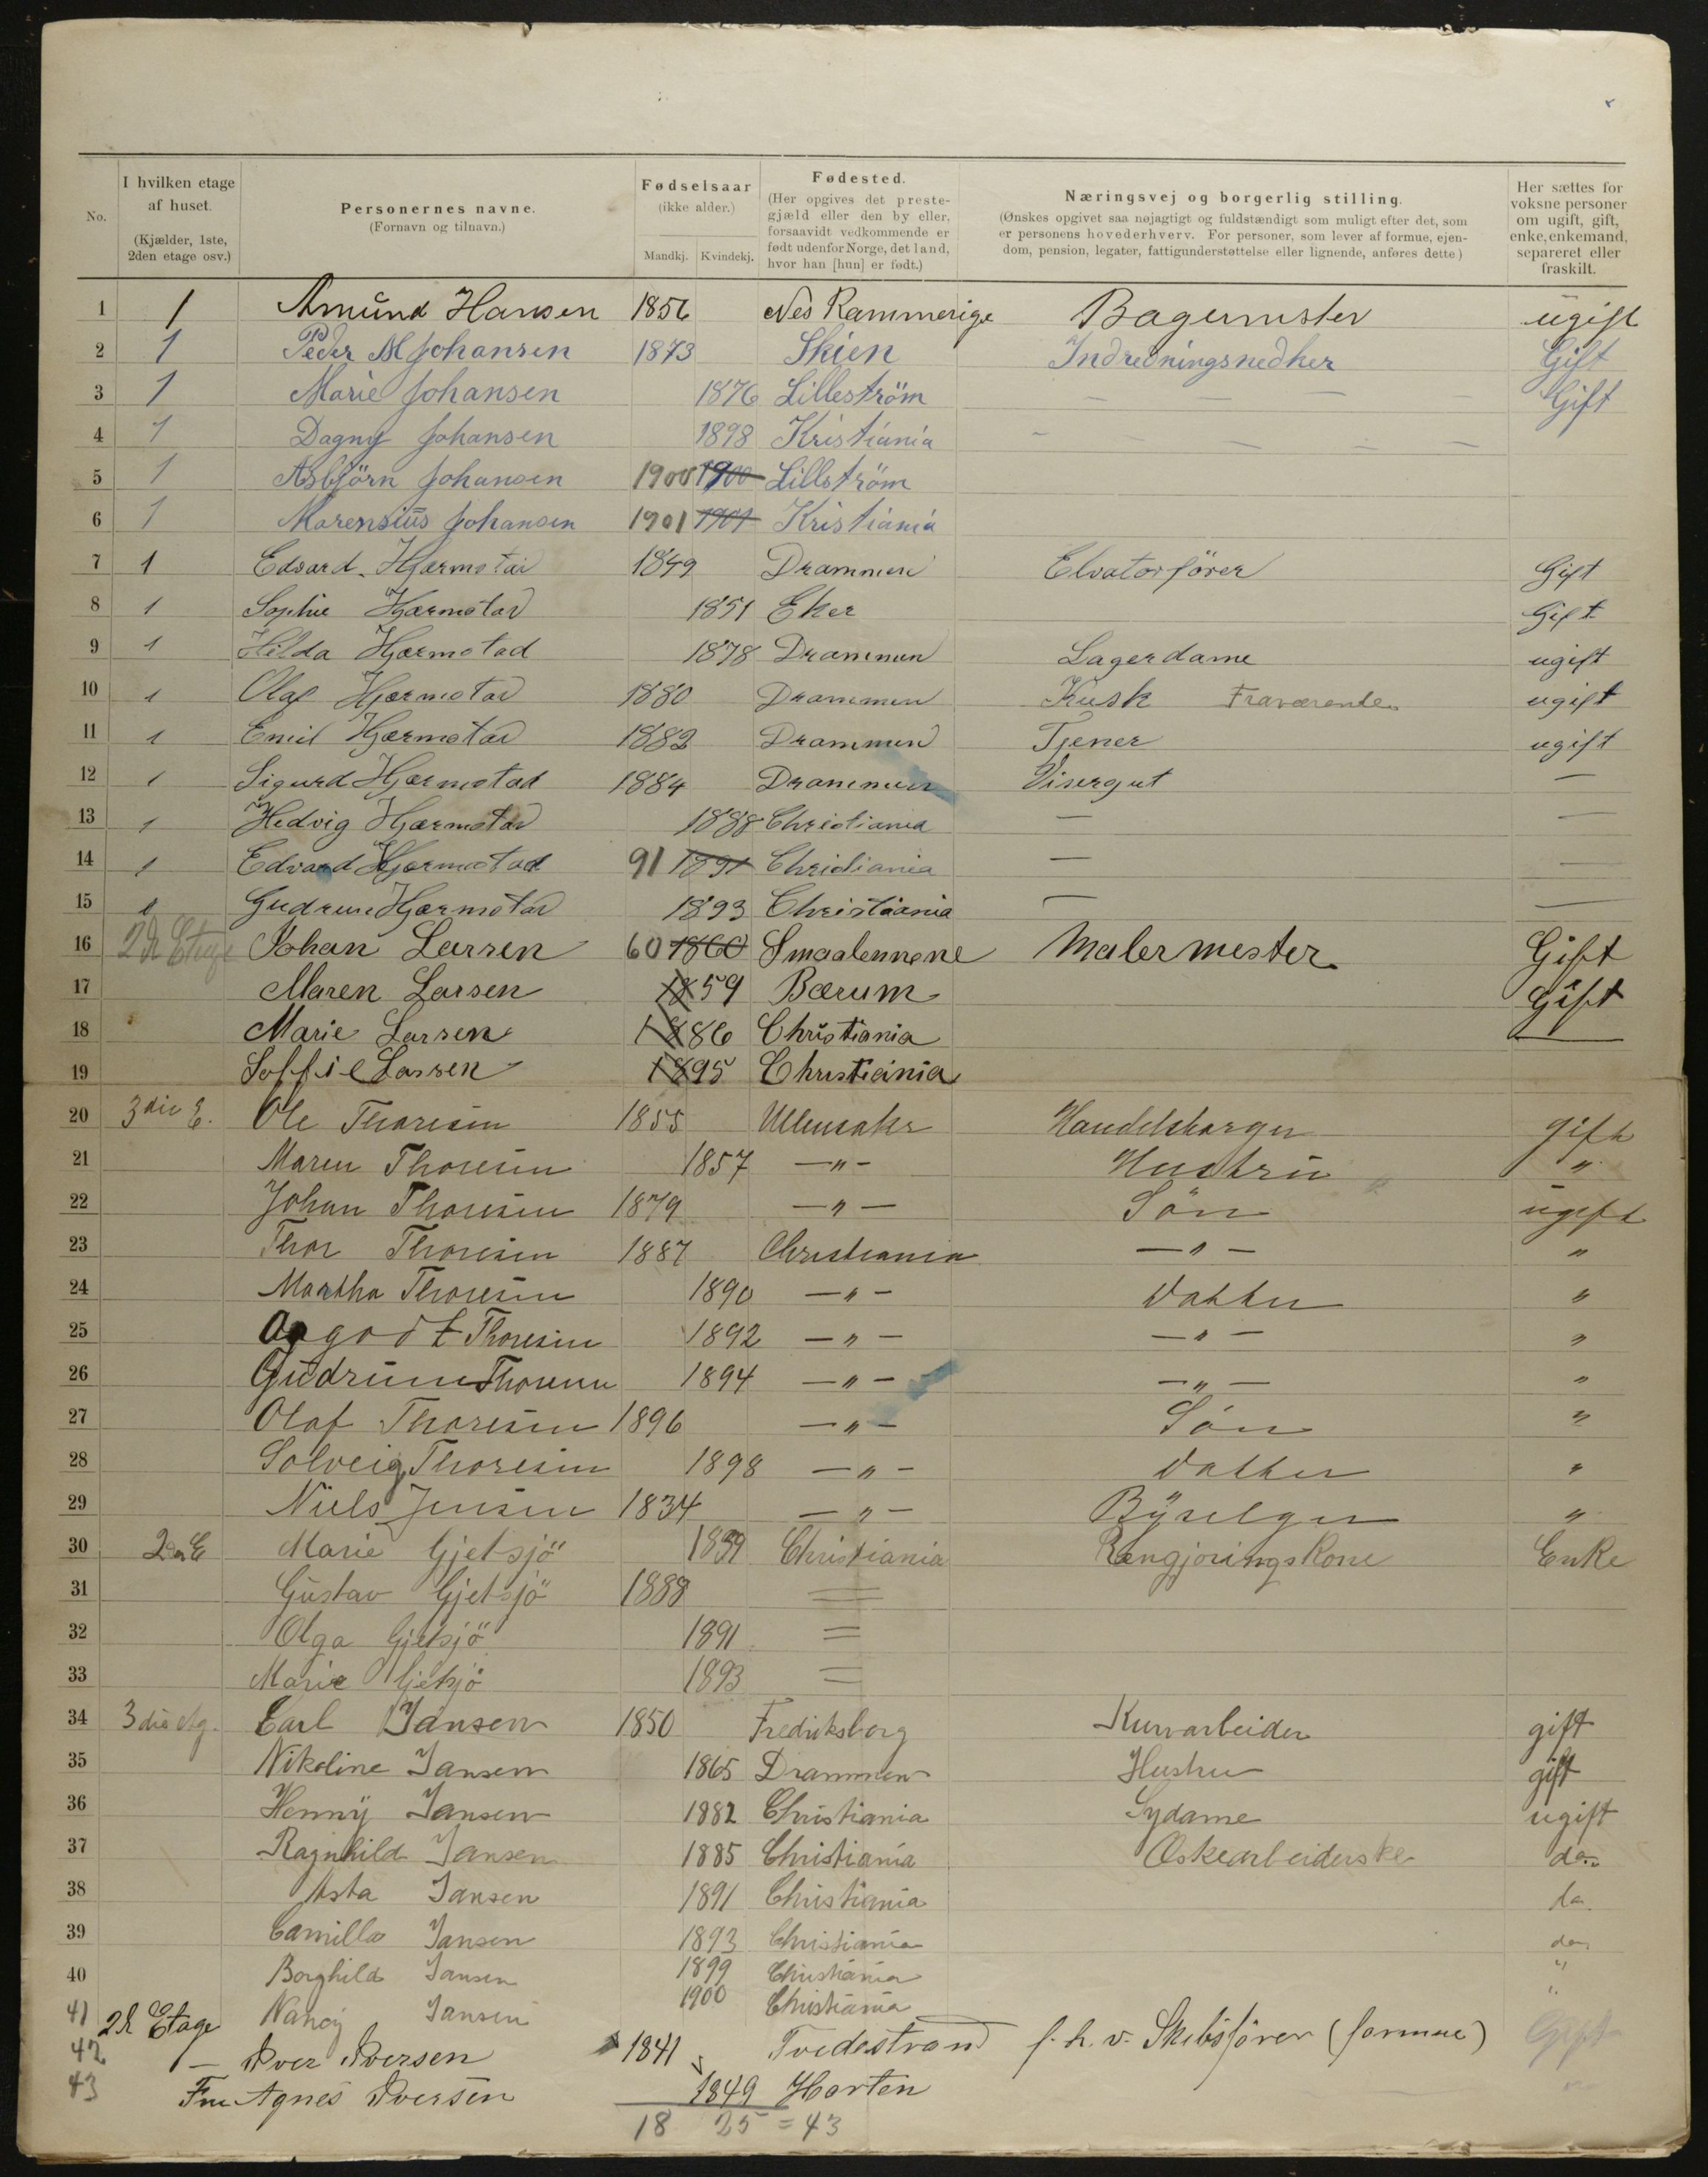 No.
I hvilken etage af huset.
(Kjælder, 1ste, 2den etage osv.)
Personernes navne.
(Fornavn og tilnavn.)
Fødselsaar
(ikke alder.)
Mandkj. Kvindekj.
Fødested.
(Her opgives det prestegjæld eller den by eller, forsaavidt vedkommende er født udenfor Norge, det land, hvor han [hun] er født.)
Næringsvej og borgerlig stilling.
(Ønskes opgivet saa nøjagtigt og fuldstændigt som muligt efter det, som er personens hovederhverv. For personer, som lever af formue, ejendom, pension, legater, fattigunderstøttelse eller lignende, anføres dette)
Her sættes for voksne personer om ugift, gift, enke, enkemand, separeret eller fraskilt.
1 1 Amund Hansen 1856 Nes Rammerige Bagermster ugift
2 1 Peder M Johansen 1873 Skien Indredningsnedker Gift
3 1 Marie Johansen 1876 Lilleström — — — — Gift
4 1 Dagny Johansen 1898 Kristiania — — — — —
5 1 Asbjörn Johansen 1900 1900 Lillström
6 1 Marensius Johansen 1901 1901 Kristiania
7 1 Edvard Hjærmstad 1849 Drammen Elvatorförer Gift
8 1 Sophie Hjærmstad 1851 Eker Gift
9 1 Hilda Hjærmstad 1878 Drammen Lagerdame ugift
10 1 Olaf Hjærmstad 1880 Drammen Kusk Fraværende ugift
11 1 Emil Hjærmstad 1882 Drammen Tjener ugift
12 1 Sigurd Hjærmstad 1884 Drammen Visergut —
13 1 Hedvig Hjærmstad 1888 Christiania — —
14 1 Edvard Hjærmstad 91 1891 Christiania — —
15 1 Gudrun Hjærmstad 1893 Christiania — —
16 2d Etage Johan Larsen 60 1860 Smaalennene Malermester Gift
17 Maren Larsen 1859 Bærum Gift
18 Marie Larsen 1886 Christiania
19 Soffie Larsen 1895 Christiania
20 3die E. Ole Thoresen 1855 Ullensaker Handelsborger gift
21 Maren Thoresen 1857 —"— Hustru "
22 Johan Thoresen 1879 —"— Sön ugift
23 Thor Thoresen 1887 Christiania —"— "
24 Martha Thoresen 1890 —"— Datter "
25 Aagodt Thoresen 1892 —"— —"— "
26 Gudrun Thoresen 1894 —"— —"— "
27 Olaf Thoresen 1896 —"— Sön "
28 Solveig Thoresen 1898 —"— Datter "
29 Niels Jensen 1834 —"— Byselger "
30 2den E Marie Gjetsjö 1859 Christiania Rængjöringskone Enke
31 Gustav Gjetsjö 1888 =
32 Olga Gjetsjö 1891 =
33 Marie Gjetsjö 1893 =
34 3die etg. Carl Jansen 1850 Fredriksborg Kurvarbeider gift
35 Nikoline Jansen 1865 Drammen Hustru gift
36 Henny Jansen 1882 Christiania Sydame ugift
37 Ragnhild Jansen 1885 Christiania Æskearbeiderske do
38 Asta Jansen 1891 Christiania do
39 Camilla Jansen 1893 Christiania do
40 Borghild Jansen 1899 Christiania "
41 Nancy Jansen 1900 Christiania "
42 2d Etage — Iver Iversen 1841 Tvedestrand f. h. v. Skibsförer (formue) Gift
43 Fru Agnes Iversen 1849 Horten
18 25 = 43